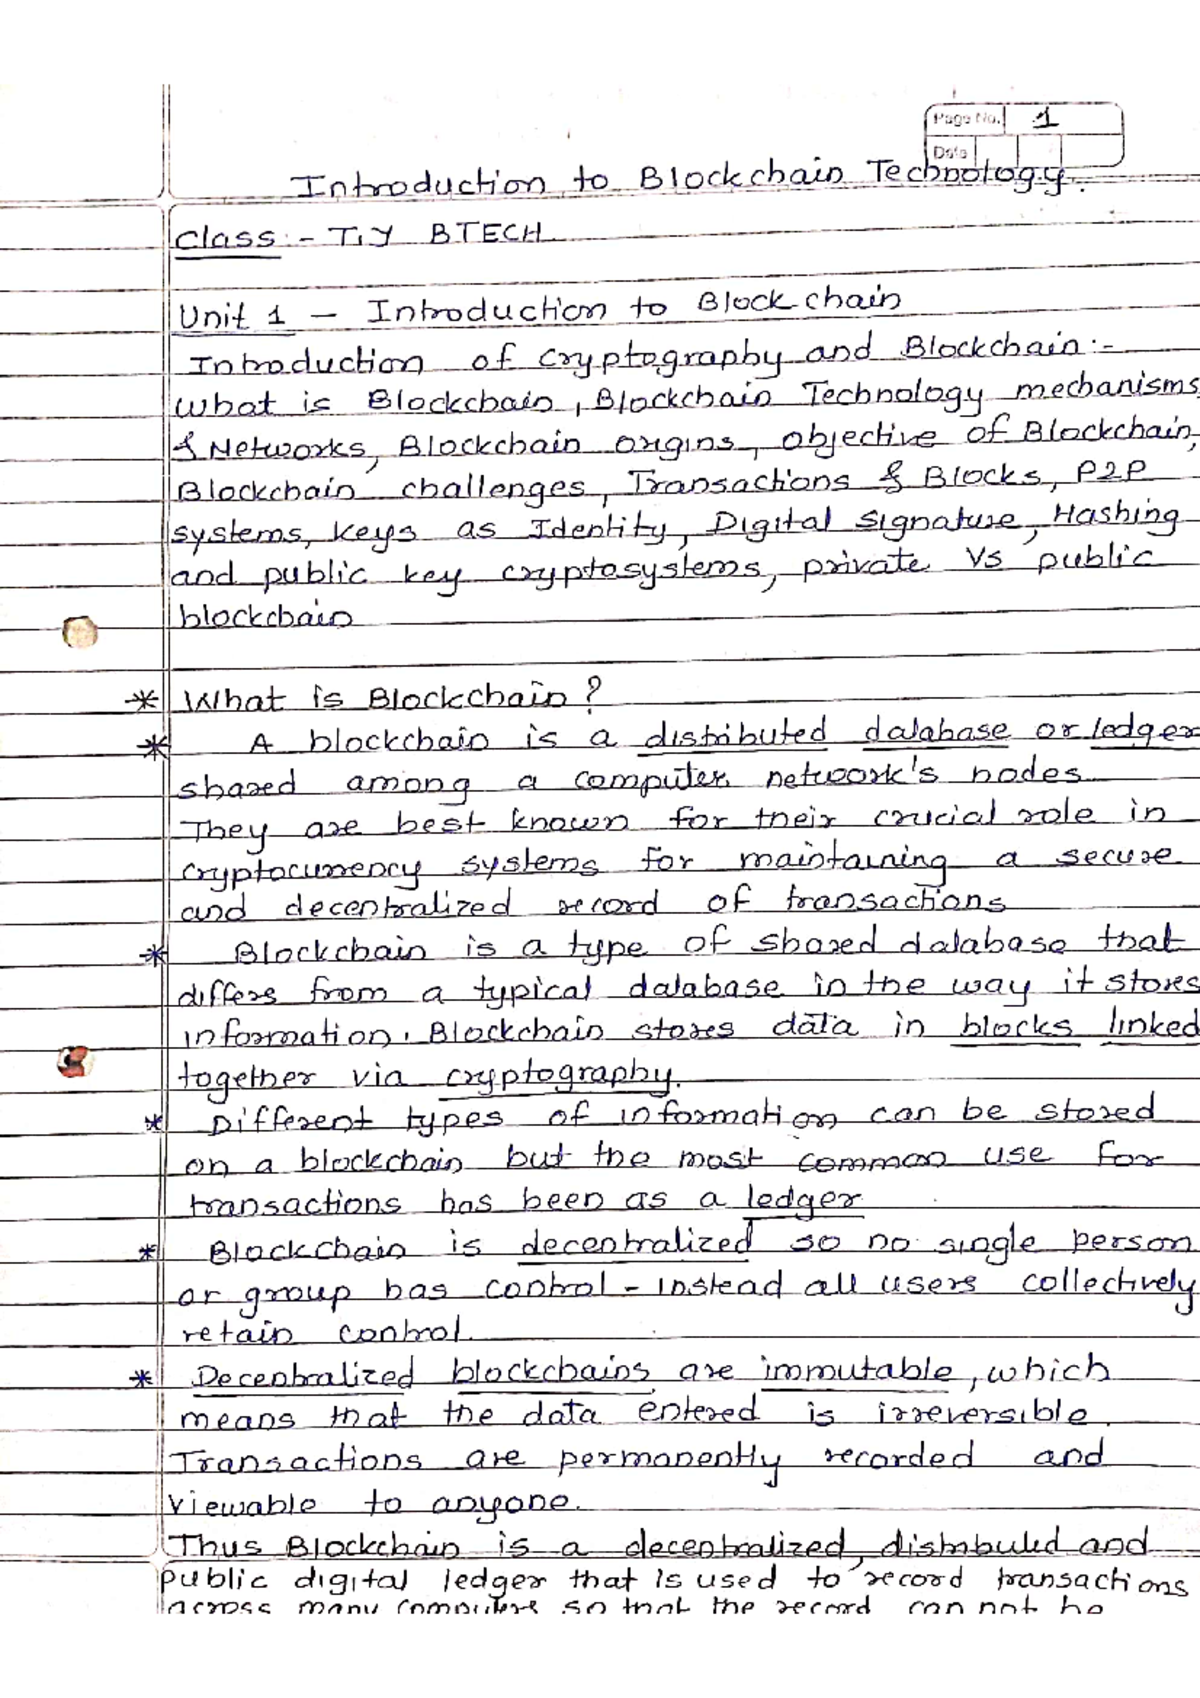 Page No. 1
Date
Introduction to Blockchain Technology.
Class :- T.Y BTECH
Unit 1 - Introduction to Blockchain
Introduction of cryptography and Blockchain:-
What is Blockchain, Blockchain Technology mechanisms
& Networks, Blockchain origins, objective of Blockchain,
Blockchain challenges, Transactions & Blocks, P2P
systems, keys as Identity, Digital Signature, Hashing
and public key cryptosystems, private Vs public
blockchain
* What is Blockchain?
* A blockchain is a distributed database or ledger
shared among a computer network's nodes
They are best known for their crucial role in
cryptocurrency systems for maintaining a secure
and decentralized record of transactions
* Blockchain is a type of shared database that
differs from a typical database in the way it stores
information. Blockchain stores data in blocks linked
together via cryptography.
* Different types of information can be stored
on a blockchain but the most common use for
transactions has been as a ledger
* Blockchain is decentralized so no single person
or group has control - instead all users collectively
retain control.
* Decentralized blockchains are immutable, which
means that the data entered is irreversible.
Transactions are permanently recorded and
viewable to anyone.
Thus Blockchain is a decentralized, distributed and
public digital ledger that is used to record transactions
across many computers so that the record can not be